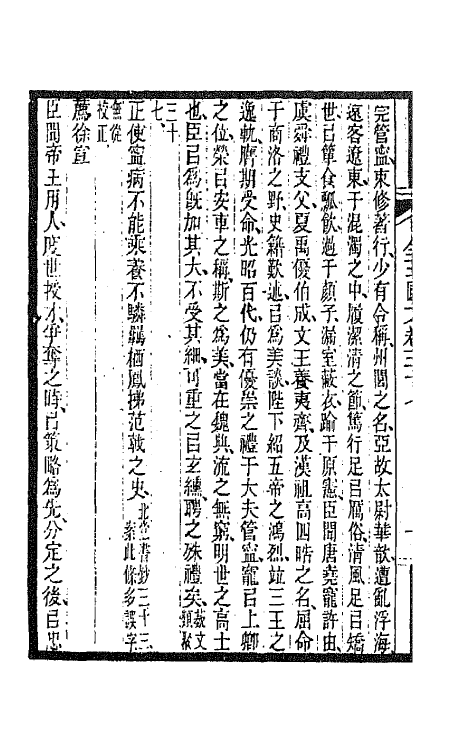 完管寧束修著行少有令稱州閭之名亞故太尉華歆遭亂浮海
遠客遼東于混濁之中履潔清之節篤行足㠯厲俗清風足㠯矯
世㠯簞食瓢飲過于顏子漏室蔽衣踰于原憲臣聞唐堯寵許由
虞舜禮支父夏禹優伯成文王養夷齊及漢祖高四皓之名屈命
于商洛之野史籍歎述㠯為美談陛下紹五帝之鴻烈竝三王之
逸軌膺期受命光昭百代仍有優崇之禮于大夫管寧寵㠯上卿
之位榮㠯安車之稱斯之為美當在魏典流之無窮明世之高士
也臣㠯為既加其大不受其細可重之㠯玄纁聘之殊禮矣藝文類聚
三十
七
正使寧病不能乘養不驎羈栖鳳拂范戟之史北堂書鈔三十三案此條多誤字
無從
校正
薦徐宣
臣聞帝王用人度世授才爭奪之時㠯策略為先分定之後㠯忠
全三國文卷三十